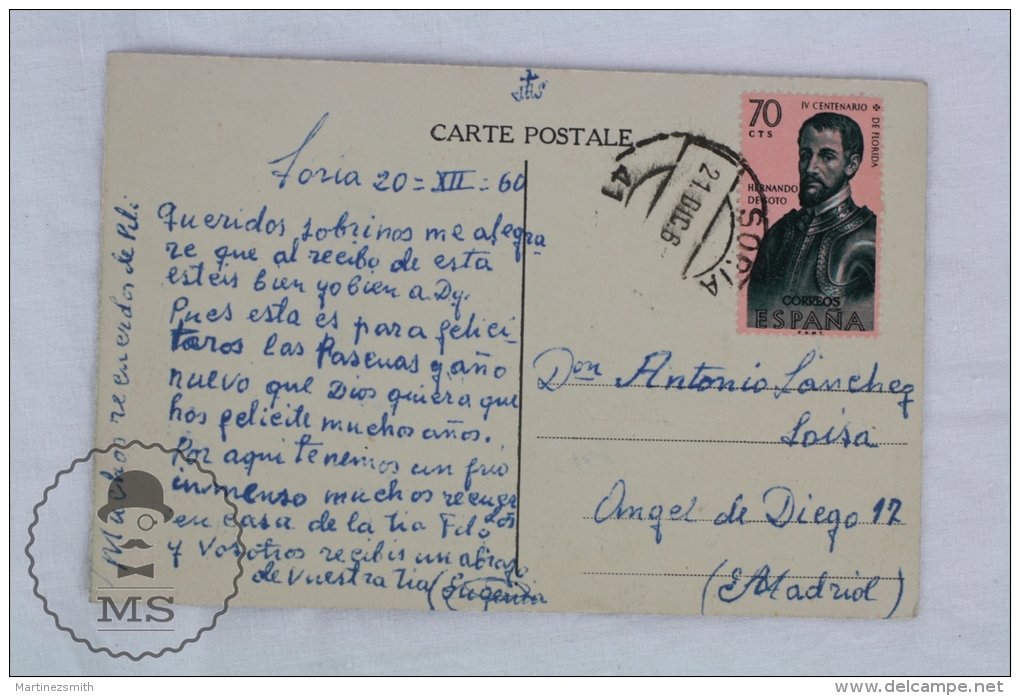 Jhs
CARTE POSTALE
Soria 20=XII=60
Queridos sobrinos me alegra
re que al recibo de esta
esteis bien yo bien a.Dg.
Pues esta es para felici-
taros las Pascuas y año
nuevo que Dios quiera que
hos felicite muchos años.
Por aqui tenemos un frio
inmenso muchos recuer
dos
en casa de la tia Filo
y vosotros recibis un abrazo
de vuestra tia (Eugenia
Muchos recuerdos de Pili
70
CTS
IV CENTENARIO
DE FLORIDA
HERNANDO
DE SOTO
CORREOS
ESPAÑA
F.N.M.T.
41
21.DIC.6
SORIA
Don Antonio Sanchez
Loisa
Angel de Diego 12
(Madrid)
MS
Martinezsmith
http://www.delcampe.net